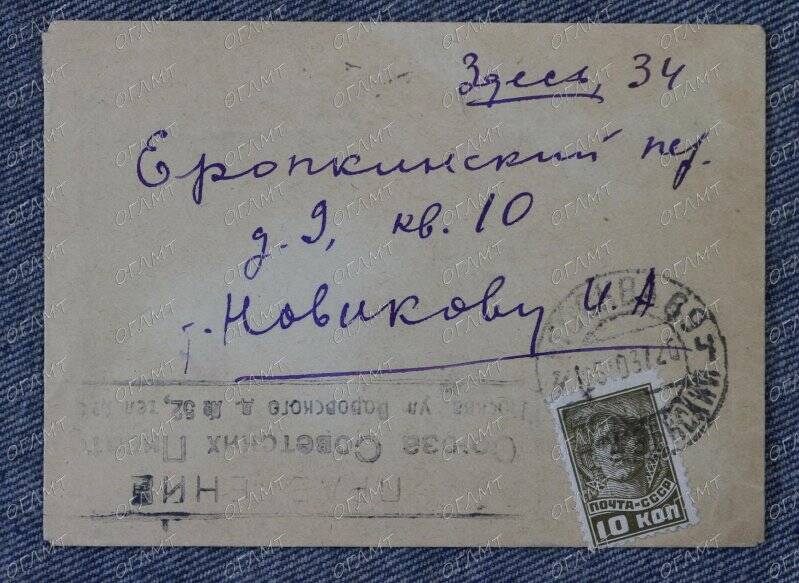 Здесь, 34
Еропкинский пер.
д. 9, кв. 10
т. Новикову И А
МОСКВА 69
ПРАВЛЕНИЯ
Союза Советских Писат
Москва, ул Воровского д. № 52, тел
ПОЧТА-СССР
10 КОП
ОГАМТ